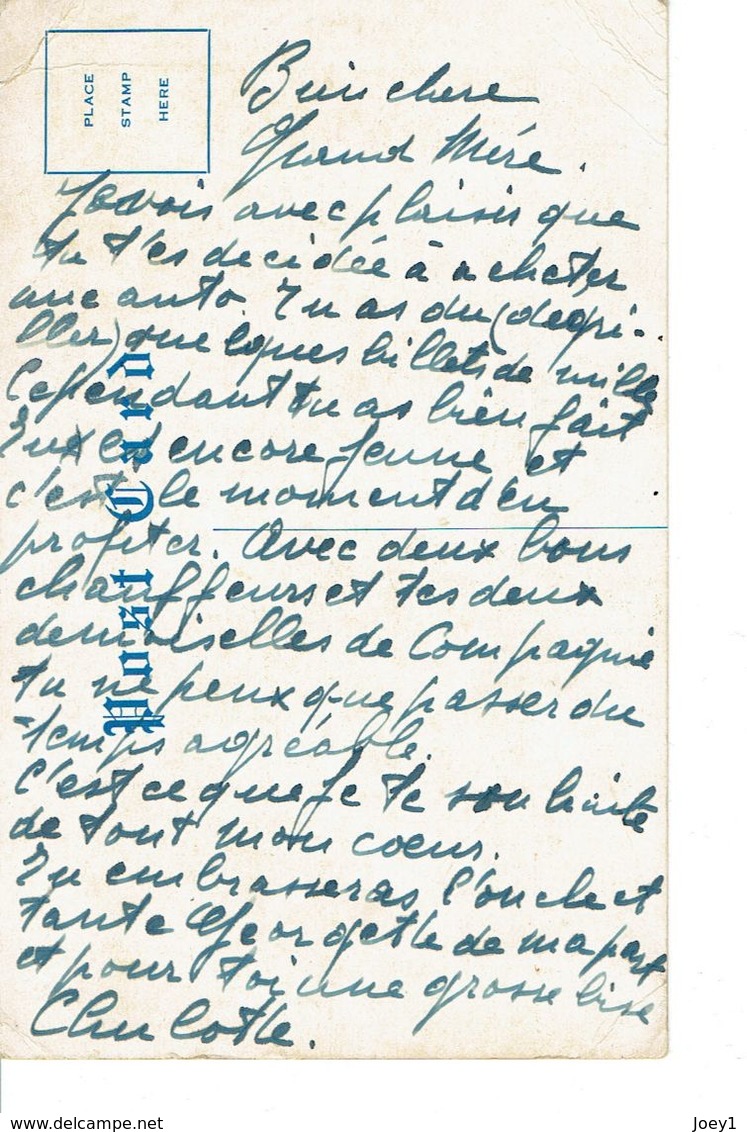 PLACE
STAMP
HERE
Post Card
Bien chere
Grand Mère.
Je vois avec plaisir que
tu t'es decidée à acheter
une auto Tu as du (degri-
ller) quelques billets de mille
Cependant tu as bien fait
Tu es encore jeune et
c'est le moment d'en
profiter. Avec deux bons
chauffeurs et tes deux
demoiselles de Compagnie
tu ne peux que passer du
temps agréable.
C'est ce que je te souhaite
de tout mon coeur.
Tu embrasseras l'oncle et
tante Georgette de ma part
et pour toi une grosse bise
Charlotte.
www.delcampe.net
Joey1